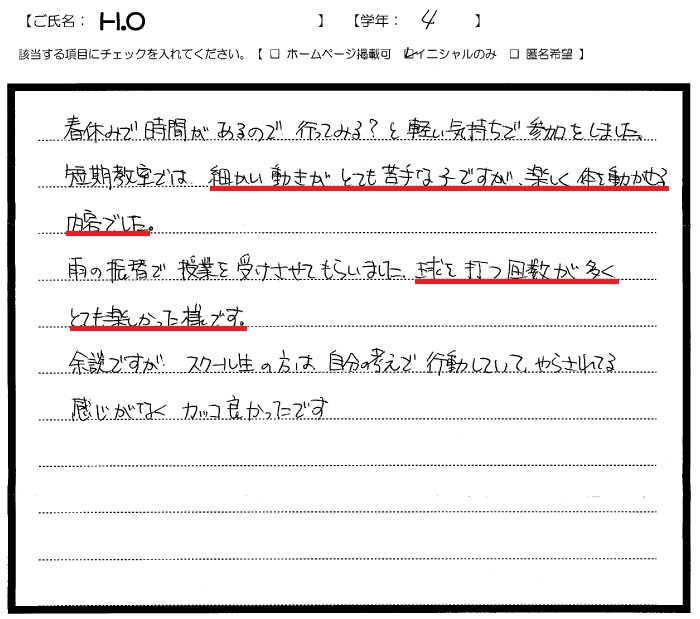 【ご氏名： H.O 】 【学年： 4 】
該当する項目にチェックを入れてください。【 □ ホームページ掲載可 ☑イニシャルのみ □ 匿名希望 】
春休みで時間があるので 行ってみる？と軽い気持ちで参加をしました。
短期教室では 細かい動きがとても苦手な子ですが、楽しく体を動かせる
内容でした。
雨の振替で授業を受けさせてもらいました。球を打つ回数が多く
とても楽しかった様です。
余談ですが スクール生の方は自分の考えで行動していて、やらされてる
感じがなくカッコ良かったです